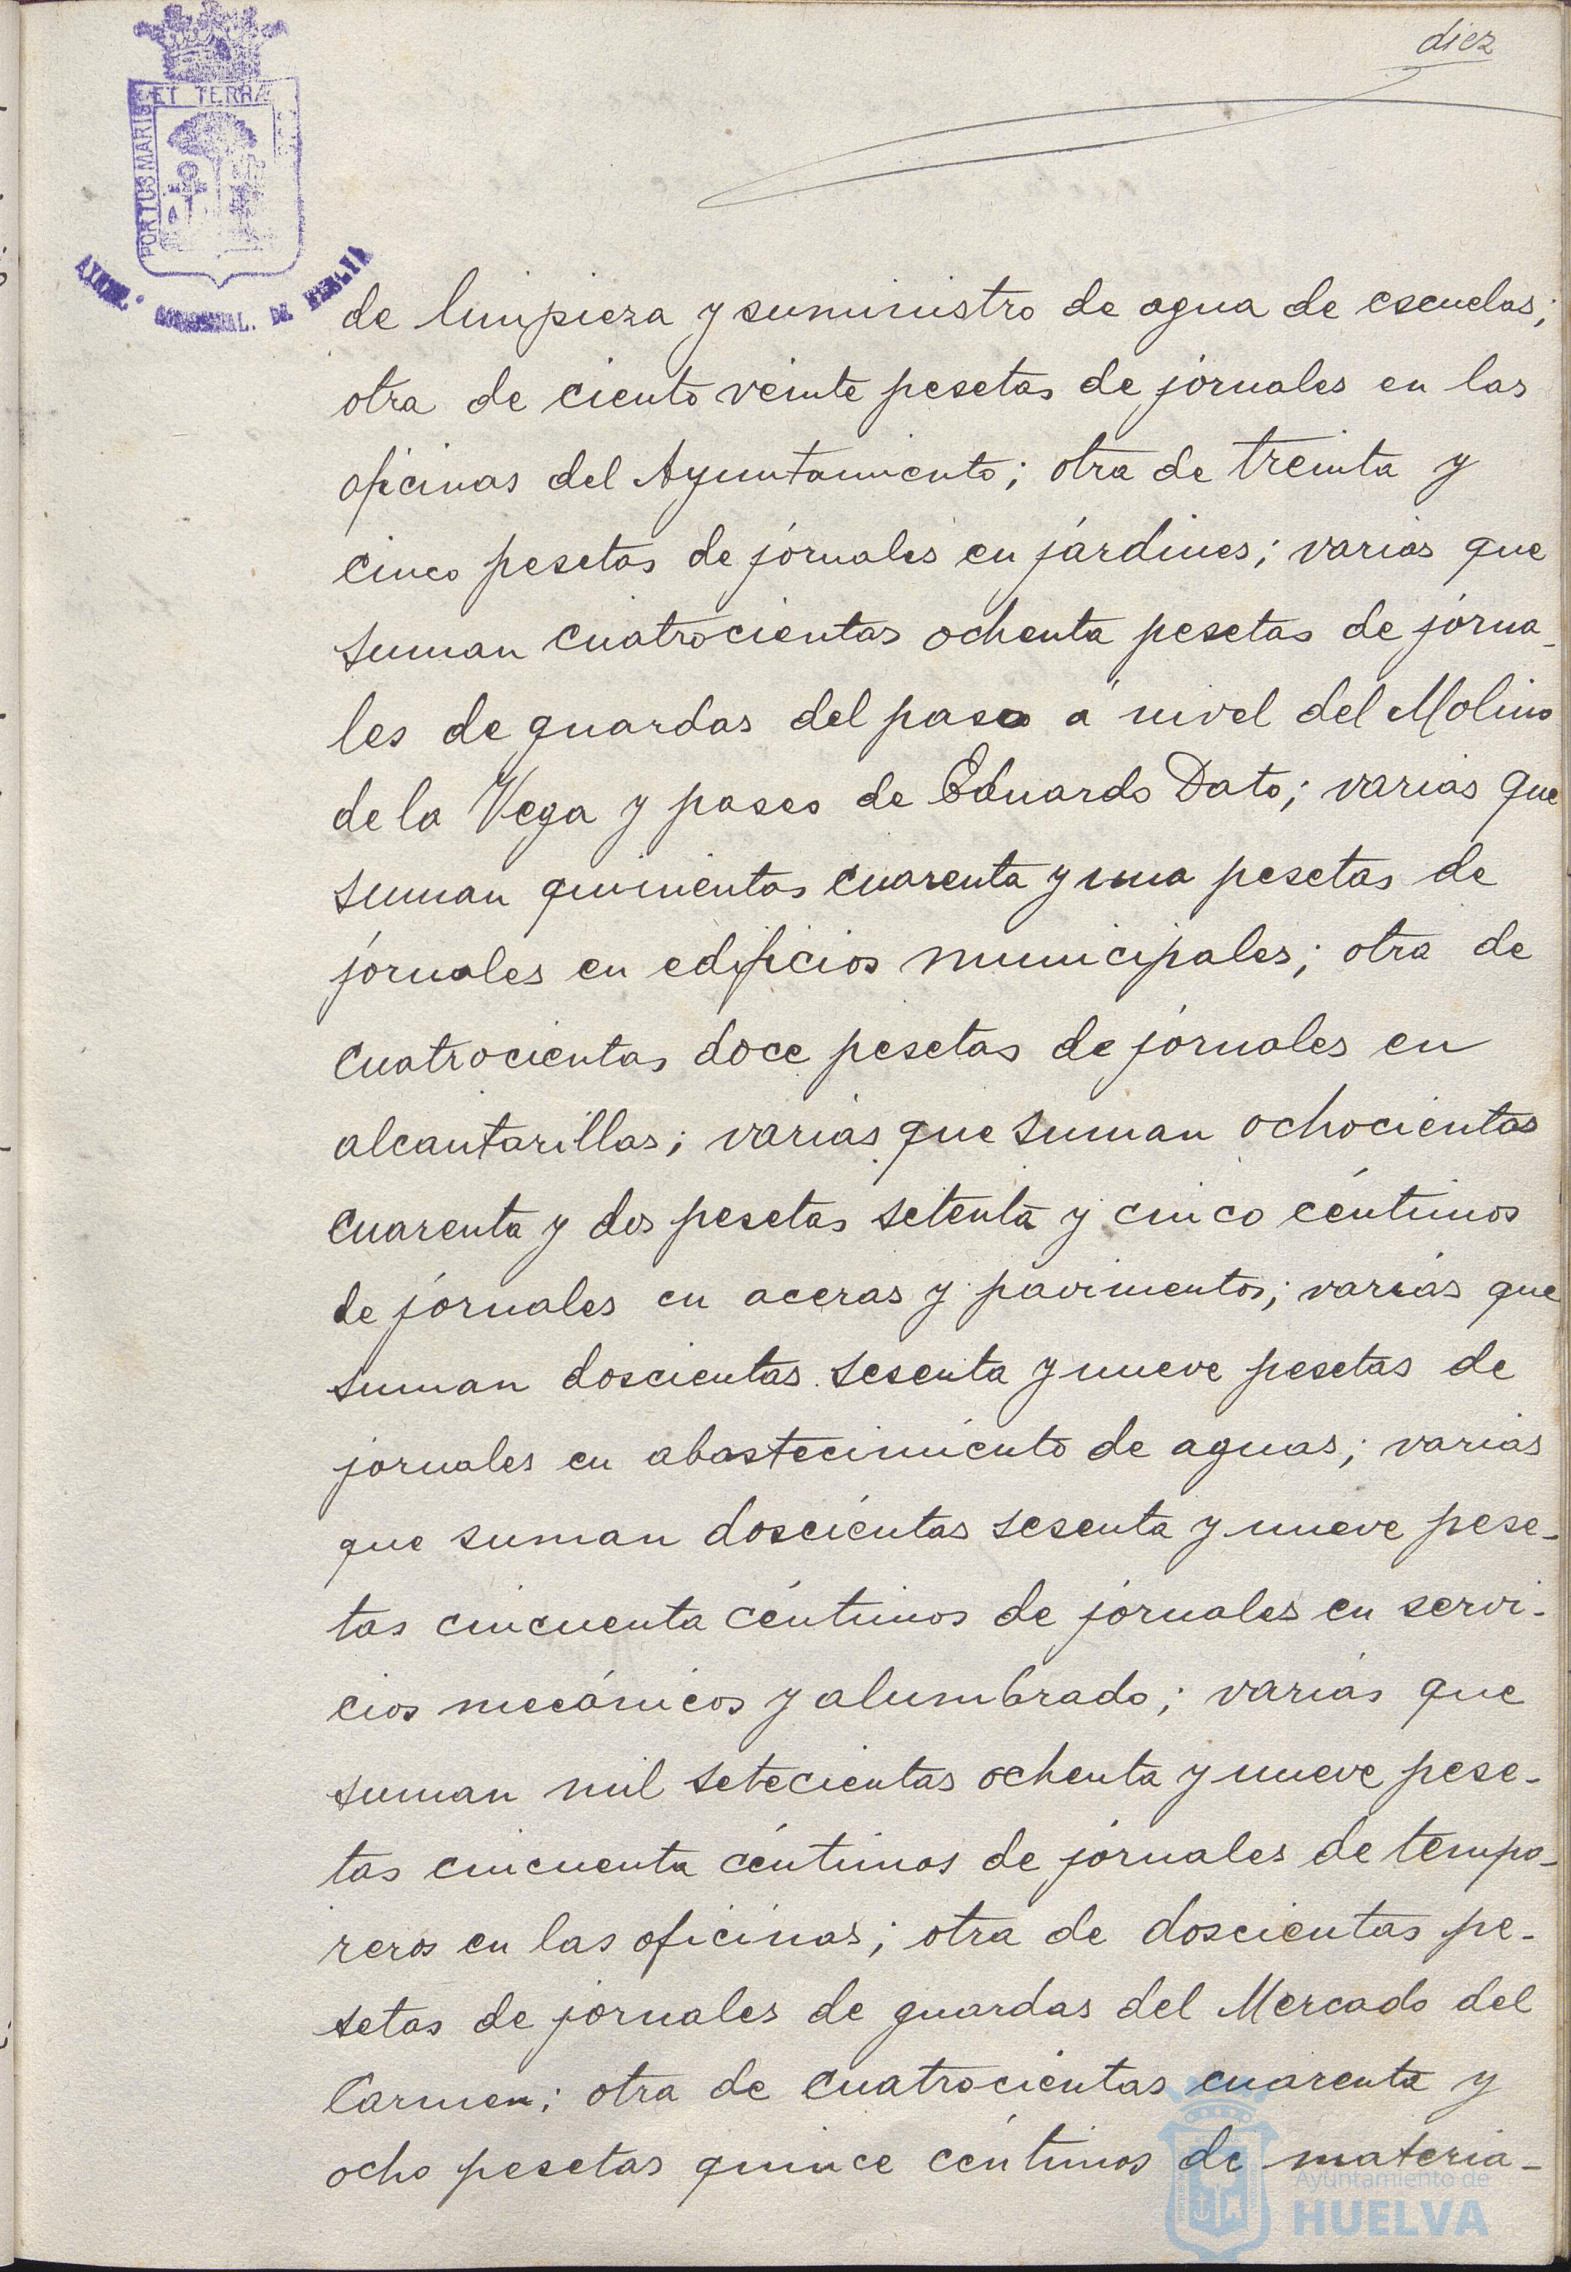 diez
ET TERRÆ
PORTUS MARIS
AYUN. CONSTITUCIONAL. DE HUELVA
de limpieza y suministro de agua de escuelas;
otra de ciento veinte pesetas de jornales en las
oficinas del Ayuntamiento; otra de treinta y
cinco pesetas de jornales en jardines; varias que
suman cuatrocientas ochenta pesetas de jorna-
les de guardas del paso a nivel del Molino
de la Vega y paseo de Eduardo Dato; varias que
suman quinientas cuarenta y una pesetas de
jornales en edificios municipales; otra de
cuatrocientas doce pesetas de jornales en
alcantarillas; varias que suman ochocientas
cuarenta y dos pesetas setenta y cinco céntimos
de jornales en aceras y pavimentos; varias que
suman doscientas sesenta y nueve pesetas de
jornales en abastecimiento de aguas; varias
que suman doscientas sesenta y nueve pese-
tas cincuenta céntimos de jornales en servi-
cios mecánicos y alumbrado; varias que
suman mil setecientas ochenta y nueve pese-
tas cincuenta céntimos de jornales de tempo-
reros en las oficinas; otra de doscientas pe-
setas de jornales de guardas del Mercado del
Carmen; otra de cuatrocientas cuarenta y
ocho pesetas quince céntimos de materia-
Ayuntamiento de
HUELVA